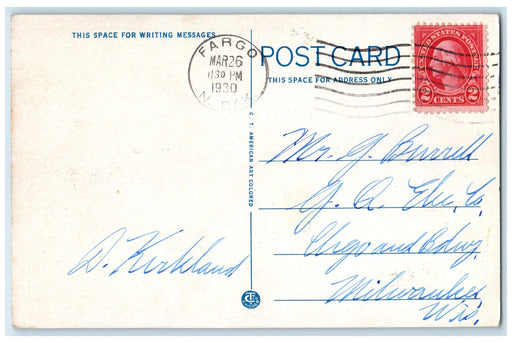 THIS SPACE FOR WRITING MESSAGES
FARGO
MAR 26
11 30 PM
1930
N. DAK.
POST CARD
THIS SPACE FOR ADDRESS ONLY
UNITED STATES POSTAGE
2 CENTS 2
C. T. AMERICAN ART COLORED
Mr. G. Burrell
G. A. Elec. Co.
and Bdwy
Milwaukee
Wis.
D. Kirkland